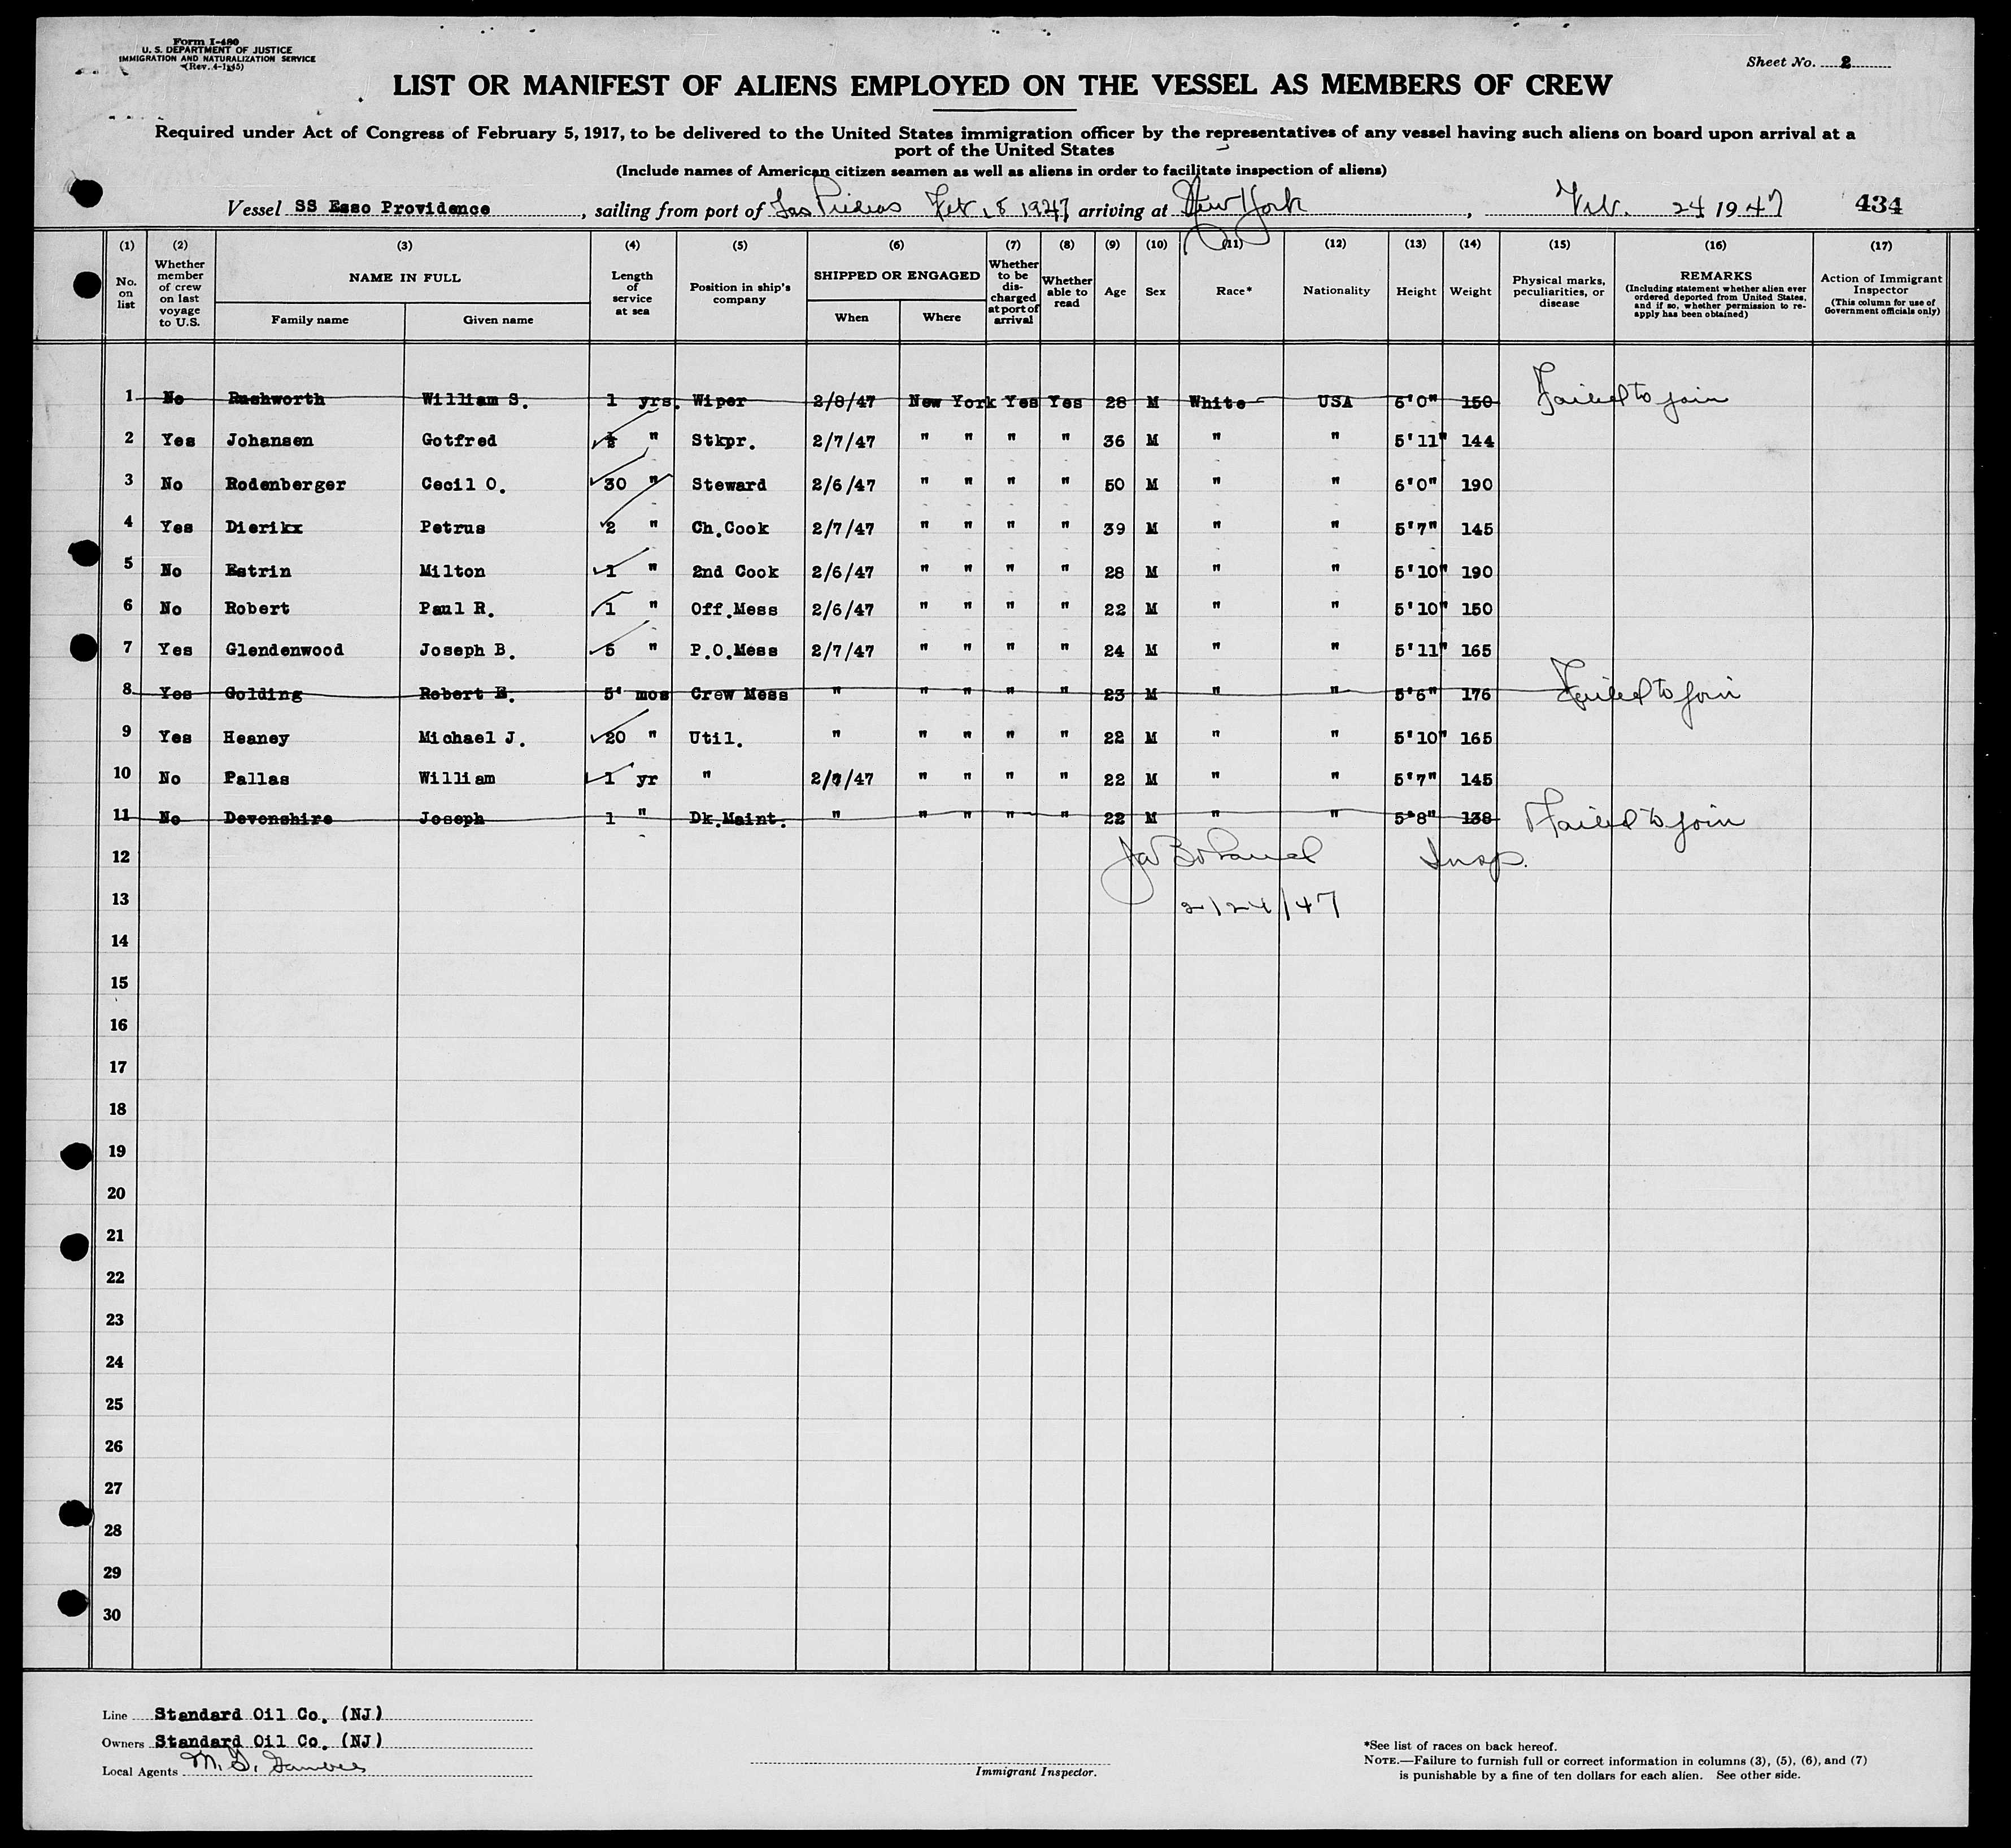 Form I-480
U. S. DEPARTMENT OF JUSTICE
IMMIGRATION AND NATURALIZATION SERVICE
(Rev. 4-1-45)
Sheet No. 2
LIST OR MANIFEST OF ALIENS EMPLOYED ON THE VESSEL AS MEMBERS OF CREW
Required under Act of Congress of February 5, 1917, to be delivered to the United States immigration officer by the representatives of any vessel having such aliens on board upon arrival at a
port of the United States
(Include names of American citizen seamen as well as aliens in order to facilitate inspection of aliens)
Vessel SS Esso Providence, sailing from port of Las Piedras Feb 18 1947 arriving at New York, Feb. 24 1947 434
(1) (2) (3) (4) (5) (6) (7) (8) (9) (10) (11) (12) (13) (14) (15) (16) (17)
No. on list
Whether member of crew on last voyage to U.S.
NAME IN FULL
Family name Given name
Length of service at sea
Position in ship's company
SHIPPED OR ENGAGED
When Where
Whether to be discharged at port of arrival
Whether able to read
Age Sex Race* Nationality Height Weight
Physical marks, peculiarities, or disease
REMARKS
(Including statement whether alien ever ordered deported from United States, and if so, whether permission to re-apply has been obtained)
Action of Immigrant Inspector
(This column for use of Government officials only)
1 No Rushworth William S. 1 yrs. Wiper 2/8/47 New York Yes Yes 28 M White USA 6'0" 150 Failed to join
2 Yes Johansen Gotfred ½ " Stkpr. 2/7/47 " " " " 36 M " " 5'11" 144
3 No Rodenberger Cecil O. 30 " Steward 2/6/47 " " " " 50 M " " 6'0" 190
4 Yes Dierikx Petrus 2 " Ch.Cook 2/7/47 " " " " 39 M " " 5'7" 145
5 No Estrin Milton 1 " 2nd Cook 2/6/47 " " " " 28 M " " 5'10" 190
6 No Robert Paul R. 1 " Off.Mess 2/6/47 " " " " 22 M " " 5'10" 150
7 Yes Glendenwood Joseph B. 5 " P.O.Mess 2/7/47 " " " " 24 M " " 5'11" 165
8 Yes Golding Robert E. 5 mos Crew Mess " " " " " 23 M " " 5'6" 176 Failed to join
9 Yes Heaney Michael J. 20 " Util. " " " " " 22 M " " 5'10" 165
10 No Pallas William 1 yr " 2/7/47 " " " " 22 M " " 5'7" 145
11 No Devonshire Joseph 1 " Dk.Maint. " " " " " 22 M " " 5'8" 138 Failed to join
12 Insp.
13 2/24/47
14
15
16
17
18
19
20
21
22
23
24
25
26
27
28
29
30
Line Standard Oil Co. (NJ)
Owners Standard Oil Co. (NJ)
Local Agents M. G.
Immigrant Inspector.
*See list of races on back hereof.
NOTE.—Failure to furnish full or correct information in columns (3), (5), (6), and (7)
is punishable by a fine of ten dollars for each alien. See other side.